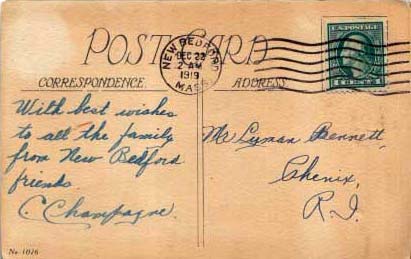 POST CARD
NEW BEDFORD
DEC 22
2 AM
1919
MASS.
U.S. POSTAGE
CORRESPONDENCE
ADDRESS
With best wishes
to all the family
from New Bedford
friends.
C Champagne.
Mr Lyman Bennett,
Chenix,
R.I.
No 1016